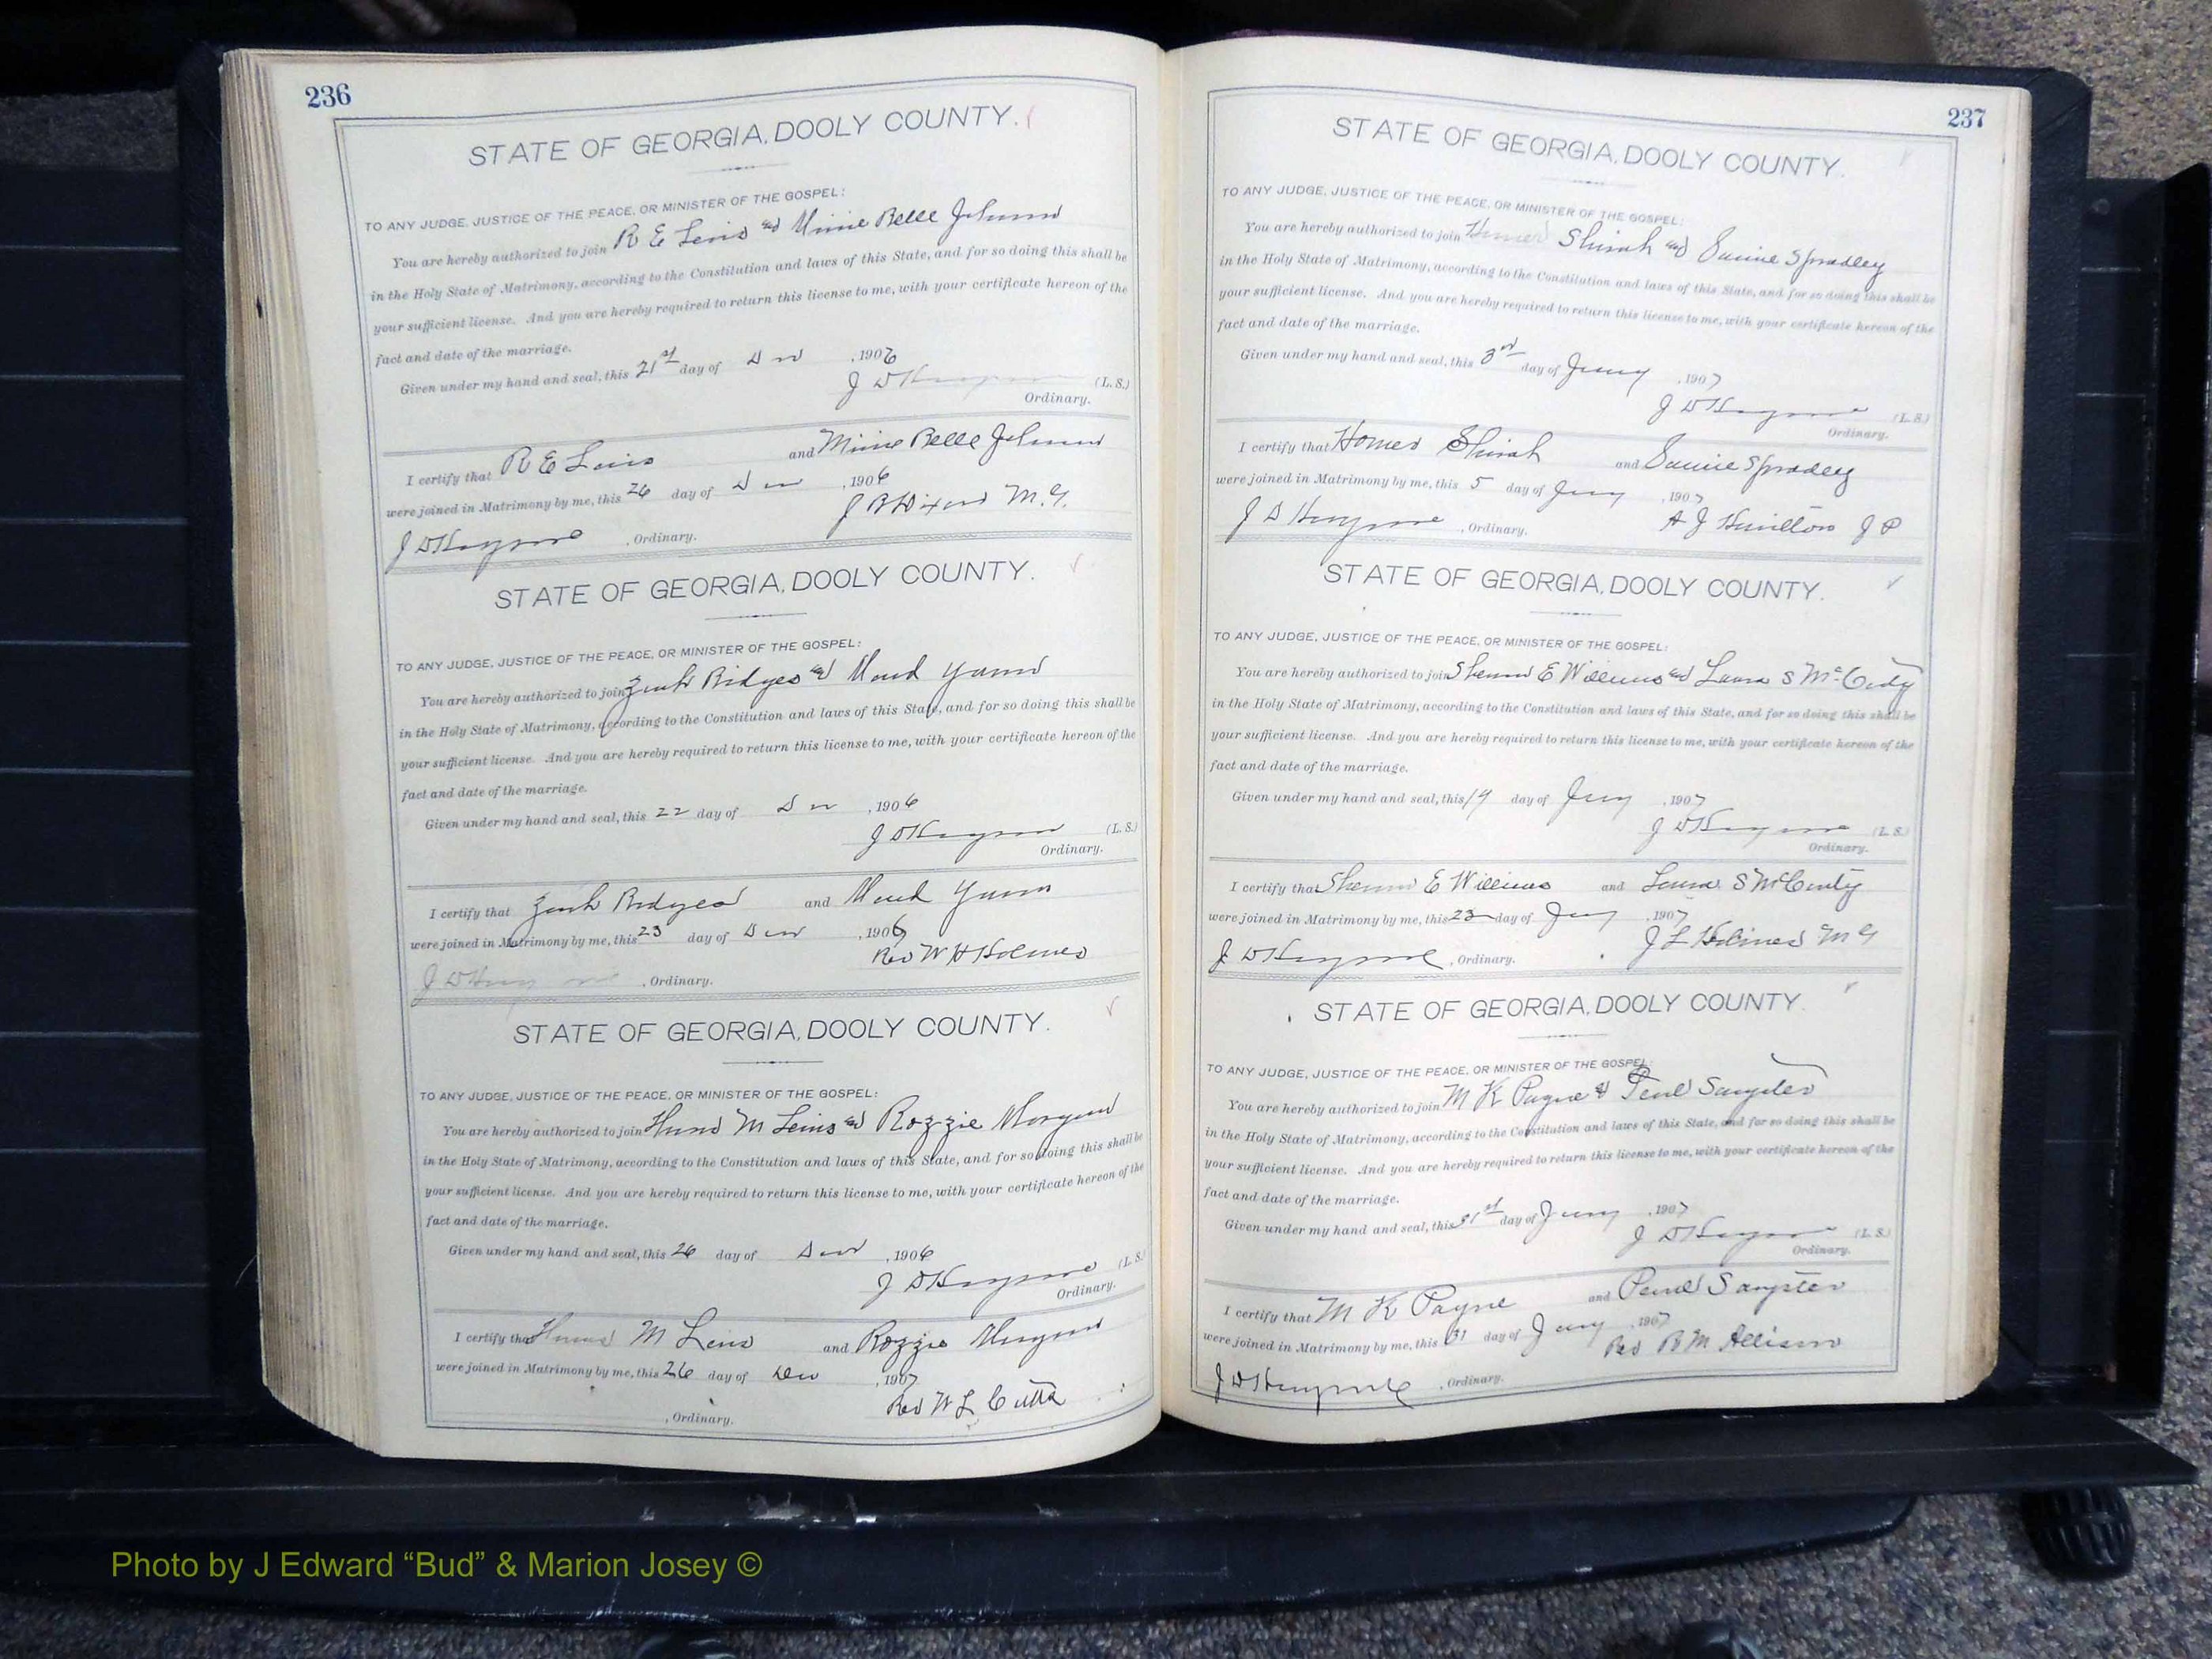 236
STATE OF GEORGIA, DOOLY COUNTY.
TO ANY JUDGE, JUSTICE OF THE PEACE, OR MINISTER OF THE GOSPEL:
You are hereby authorized to join R E Lewis and Minnie Belle Johnson
in the Holy State of Matrimony, according to the Constitution and laws of this State, and for so doing this shall be
your sufficient license. And you are hereby required to return this license to me, with your certificate hereon of the
fact and date of the marriage.
Given under my hand and seal, this 21st day of Dec, 1906
J D Hargrove (L. S.)
Ordinary.
I certify that R E Lewis and Minnie Belle Johnson
were joined in Matrimony by me, this 26 day of Dec, 1906
J D Hargrove, Ordinary. J B Dixon M.G.
STATE OF GEORGIA, DOOLY COUNTY.
TO ANY JUDGE, JUSTICE OF THE PEACE, OR MINISTER OF THE GOSPEL:
You are hereby authorized to join Zack Bridges and Maud
in the Holy State of Matrimony, according to the Constitution and laws of this State, and for so doing this shall be
your sufficient license. And you are hereby required to return this license to me, with your certificate hereon of the
fact and date of the marriage.
Given under my hand and seal, this 22 day of Dec, 1906
J D Hargrove (L. S.)
Ordinary.
I certify that Zack Bridges and Maud
were joined in Matrimony by me, this 23 day of Dec, 1906
J D Hargrove, Ordinary. Rev W H Holmes
STATE OF GEORGIA, DOOLY COUNTY.
TO ANY JUDGE, JUSTICE OF THE PEACE, OR MINISTER OF THE GOSPEL:
You are hereby authorized to join M Lewis and Rozzie Morgan
in the Holy State of Matrimony, according to the Constitution and laws of this State, and for so doing this shall be
your sufficient license. And you are hereby required to return this license to me, with your certificate hereon of the
fact and date of the marriage.
Given under my hand and seal, this 26 day of Dec, 1906
J D Hargrove (L. S.)
Ordinary.
I certify that M Lewis and Rozzie Morgan
were joined in Matrimony by me, this 26 day of Dec, 1907
, Ordinary. Rev W L Cutts
237
STATE OF GEORGIA, DOOLY COUNTY.
TO ANY JUDGE, JUSTICE OF THE PEACE, OR MINISTER OF THE GOSPEL:
You are hereby authorized to join Homer Shirah and Spradley
in the Holy State of Matrimony, according to the Constitution and laws of this State, and for so doing this shall be
your sufficient license. And you are hereby required to return this license to me, with your certificate hereon of the
fact and date of the marriage.
Given under my hand and seal, this 3rd day of Jany, 1907
J D Hargrove (L. S.)
Ordinary.
I certify that Homer Shirah and Spradley
were joined in Matrimony by me, this 5 day of Jany, 1907
J D Hargrove, Ordinary. A J Hamilton J P
STATE OF GEORGIA, DOOLY COUNTY.
TO ANY JUDGE, JUSTICE OF THE PEACE, OR MINISTER OF THE GOSPEL:
You are hereby authorized to join E Williams and Laura S McCarty
in the Holy State of Matrimony, according to the Constitution and laws of this State, and for so doing this shall be
your sufficient license. And you are hereby required to return this license to me, with your certificate hereon of the
fact and date of the marriage.
Given under my hand and seal, this 19 day of Jany, 1907
J D Hargrove (L. S.)
Ordinary.
I certify that E Williams and Laura S McCarty
were joined in Matrimony by me, this 23 day of Jany, 1907
J D Hargrove, Ordinary. J L Holmes M G
STATE OF GEORGIA, DOOLY COUNTY.
TO ANY JUDGE, JUSTICE OF THE PEACE, OR MINISTER OF THE GOSPEL:
You are hereby authorized to join M K Payne & Pearl Sangster
in the Holy State of Matrimony, according to the Constitution and laws of this State, and for so doing this shall be
your sufficient license. And you are hereby required to return this license to me, with your certificate hereon of the
fact and date of the marriage.
Given under my hand and seal, this 31st day of Jany, 1907
J D Hargrove (L. S.)
Ordinary.
I certify that M K Payne and Pearl Sangster
were joined in Matrimony by me, this 31 day of Jany, 1907
J D Hargrove, Ordinary. Rev R M Allison
Photo by J Edward “Bud” & Marion Josey ©